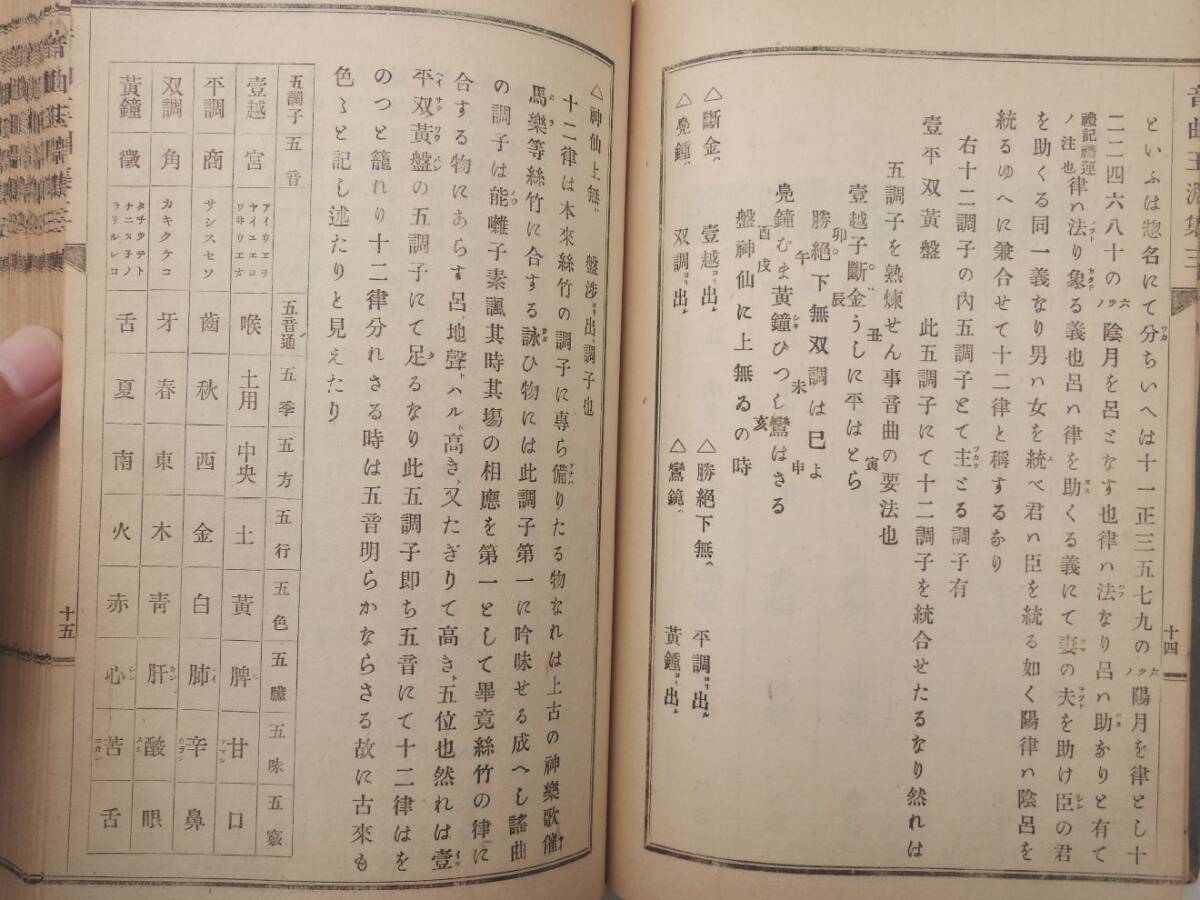 といふは惣名にて分ちいへは十一正三五七九の六ツノ陽月を律とし十
二二四六八十の六ツノ陰月を呂となす也律ハ法なり呂ハ助なりと有て
禮記禮運ノ注也 律ハ法り象る義也呂ハ律を助くる義にて妻の夫を助け臣の君
を助くる同一義なり男ハ女を統べ君ハ臣を統る如く陽律ハ陰呂を
統るゆへに兼合せて十二律と稱するなり
右十二調子の內五調子とて主とる調子有
壹平双黃盤 此五調子にて十二調子を統合せたるなり然れは
五調子を熟煉せん事音曲の要法也
壹越子斷金うしに平はとら
丑 寅
勝絕下無双調は巳よ
卯 辰
鳧鐘むま黃鐘ひつし鸞はさる
午 未 申
盤神仙に上無るの時
酉 戌 亥
△斷金ハ 壹越ヨリ出ル
△勝絕下無ハ 平調ヨリ出ル
△鳧鐘ハ 双調ヨリ出ル
△鸞鏡ハ 黃鐘ヨリ出ル
十四
△神仙上無ハ 盤涉ヨリ出ル調子也
十二律は本來絲竹の調子に專ら備りたる物なれは上古の神樂歌催
馬樂等絲竹に合する詠ひ物には此調子第一に吟味せる成へし謠曲
の調子は能囃子素謳其時其塲の相應を第一として畢竟絲竹の律に
合する物にあらす呂ハ地聲ハル高きハ又たぎりて高きハ五位也然れは壹
平双黃盤の五調子にて足るなり此五調子即ち五音にて十二律はを
のつと籠れり十二律分れさる時は五音明らかならさる故に古來も
色〻と記し述たりと見えたり
五調子 五音 五音通 五季 五方 五行 五色 五臓 五味 五竅
壹越 宮 アイウエヲ ヤイユエヨ ワヰウヱオ 喉 土用 中央 土 黃 脾 甘 口
平調 商 サシスセソ 齒 秋 西 金 白 肺 辛 鼻
双調 角 カキクケコ 牙 春 東 木 靑 肝 酸 眼
黃鐘 徵 タチツテト ナニヌ子ノ ラリルレロ 舌 夏 南 火 赤 心 苦 舌
十五